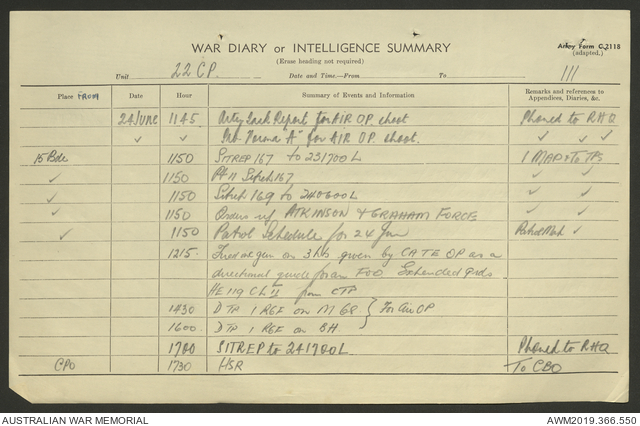 WAR DIARY or INTELLIGENCE SUMMARY
Army Form C.2118
(adapted.)
(Erase heading not required)
Unit 22 C.P. Date and Time.—From To 111
Place FROM Date Hour Summary of Events and Information Remarks and references to Appendices, Diaries, &c.
24 June 1145 Arty Task Report for AIR OP. shoot Phoned to RHQ
✓ ✓ "A" for AIR OP shoot. ✓ ✓ ✓
15 Bde 1150 SITREP 167 to 231700L 1 MAP + To TPS
✓ 1150 Pt 11 Sitrep 167 ✓ ✓
✓ 1150 Sitrep 169 to 240600L ✓ ✓
✓ 1150 Orders ref ATKINSON & GRAHAM FORCE ✓ ✓
✓ 1150 Patrol Schedule for 24 Jun ✓
1215. given by CATE OP as a
directional guide for an FOO Extended
HE 119 Ch II from
1430 DTP 1 RGF on M68 } For Air OP
1600. DTP 1 RGF on BH
1700 SITREP to 241700L Phoned to RHQ
CPO 1730 HSR To CBO
AUSTRALIAN WAR MEMORIAL AWM2019.366.550